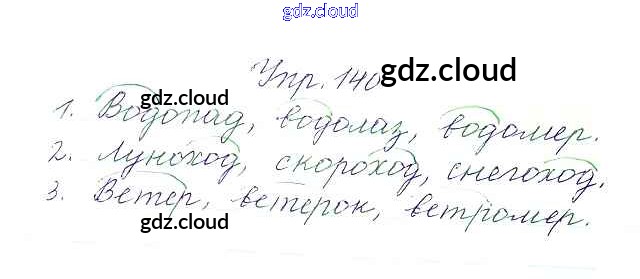 gdz.cloud
Упр. 140
gdz.cloud
gdz.cloud
1. Водопад, водолаз, водомер.
2. Луноход, скороход, снегоход.
gdz.cloud
3. Ветер, ветерок, ветромер.
gdz.cloud
gdz.cloud